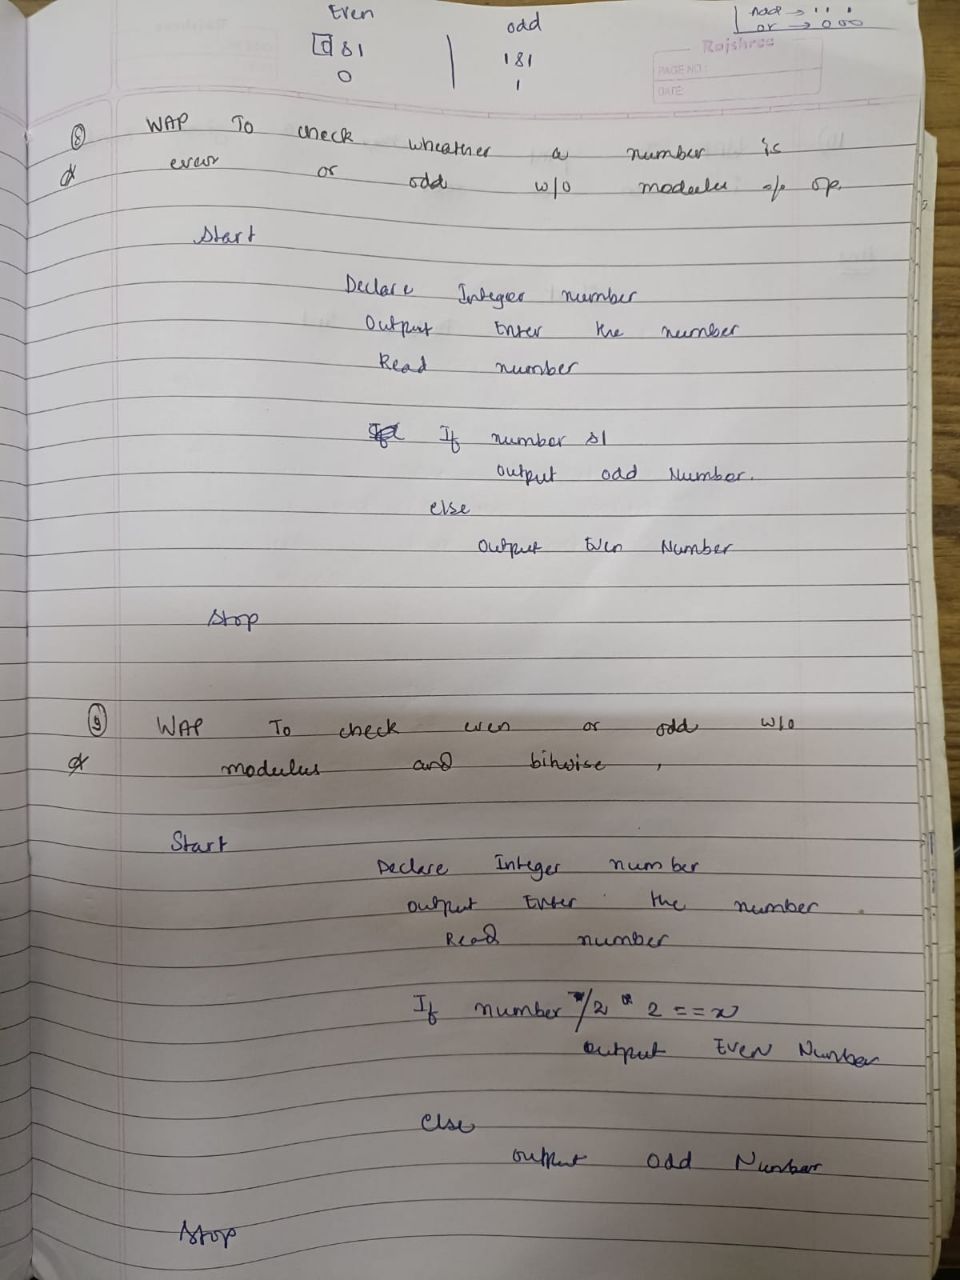 Even
odd
and → 1 1 1
or → 0 0 0
Rajshree
PAGE NO.:
DATE:
0 &1
1&1
0
1
8 WAP To check wheather a number is
even or odd w/o modulu % op.
Start
Declare Integer number
Output Enter the number
Read number
If number &1
output odd Number.
else
output Even Number
Stop
9 WAP To check even or odd w/o
modulus and bitwise ,
Start
Declare Integer number
output Enter the number
Read number
If number /2 * 2 == x
output EVEN Number
else
output odd Number
Stop